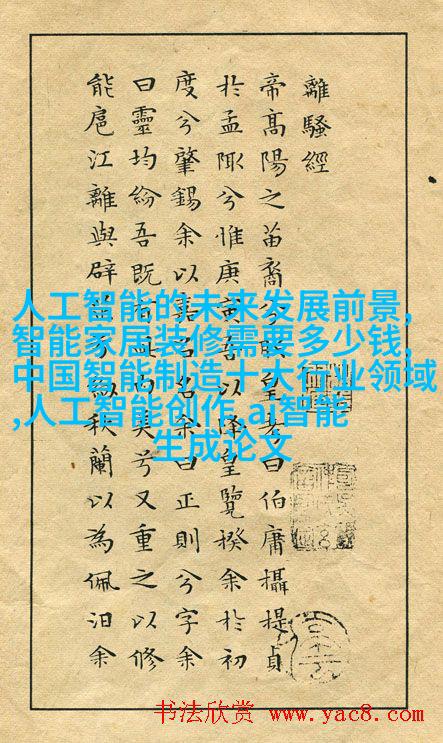 離騷經
帝高陽之苗裔兮朕皇考曰伯庸攝提貞
於孟陬兮惟庚寅吾以降皇覽揆余於初
度兮肇錫余以嘉名名余曰正則兮字余
曰靈均紛吾既有此內美兮又重之以修
能扈江離與辟芷兮紉秋蘭以為佩汩余
人工智能的未来发展前景,
智能家居装修需要多少钱,
中国智能制造十大行业领域
,人工智能创作,ai智能
生成论文
书法欣赏 www.yac8.com